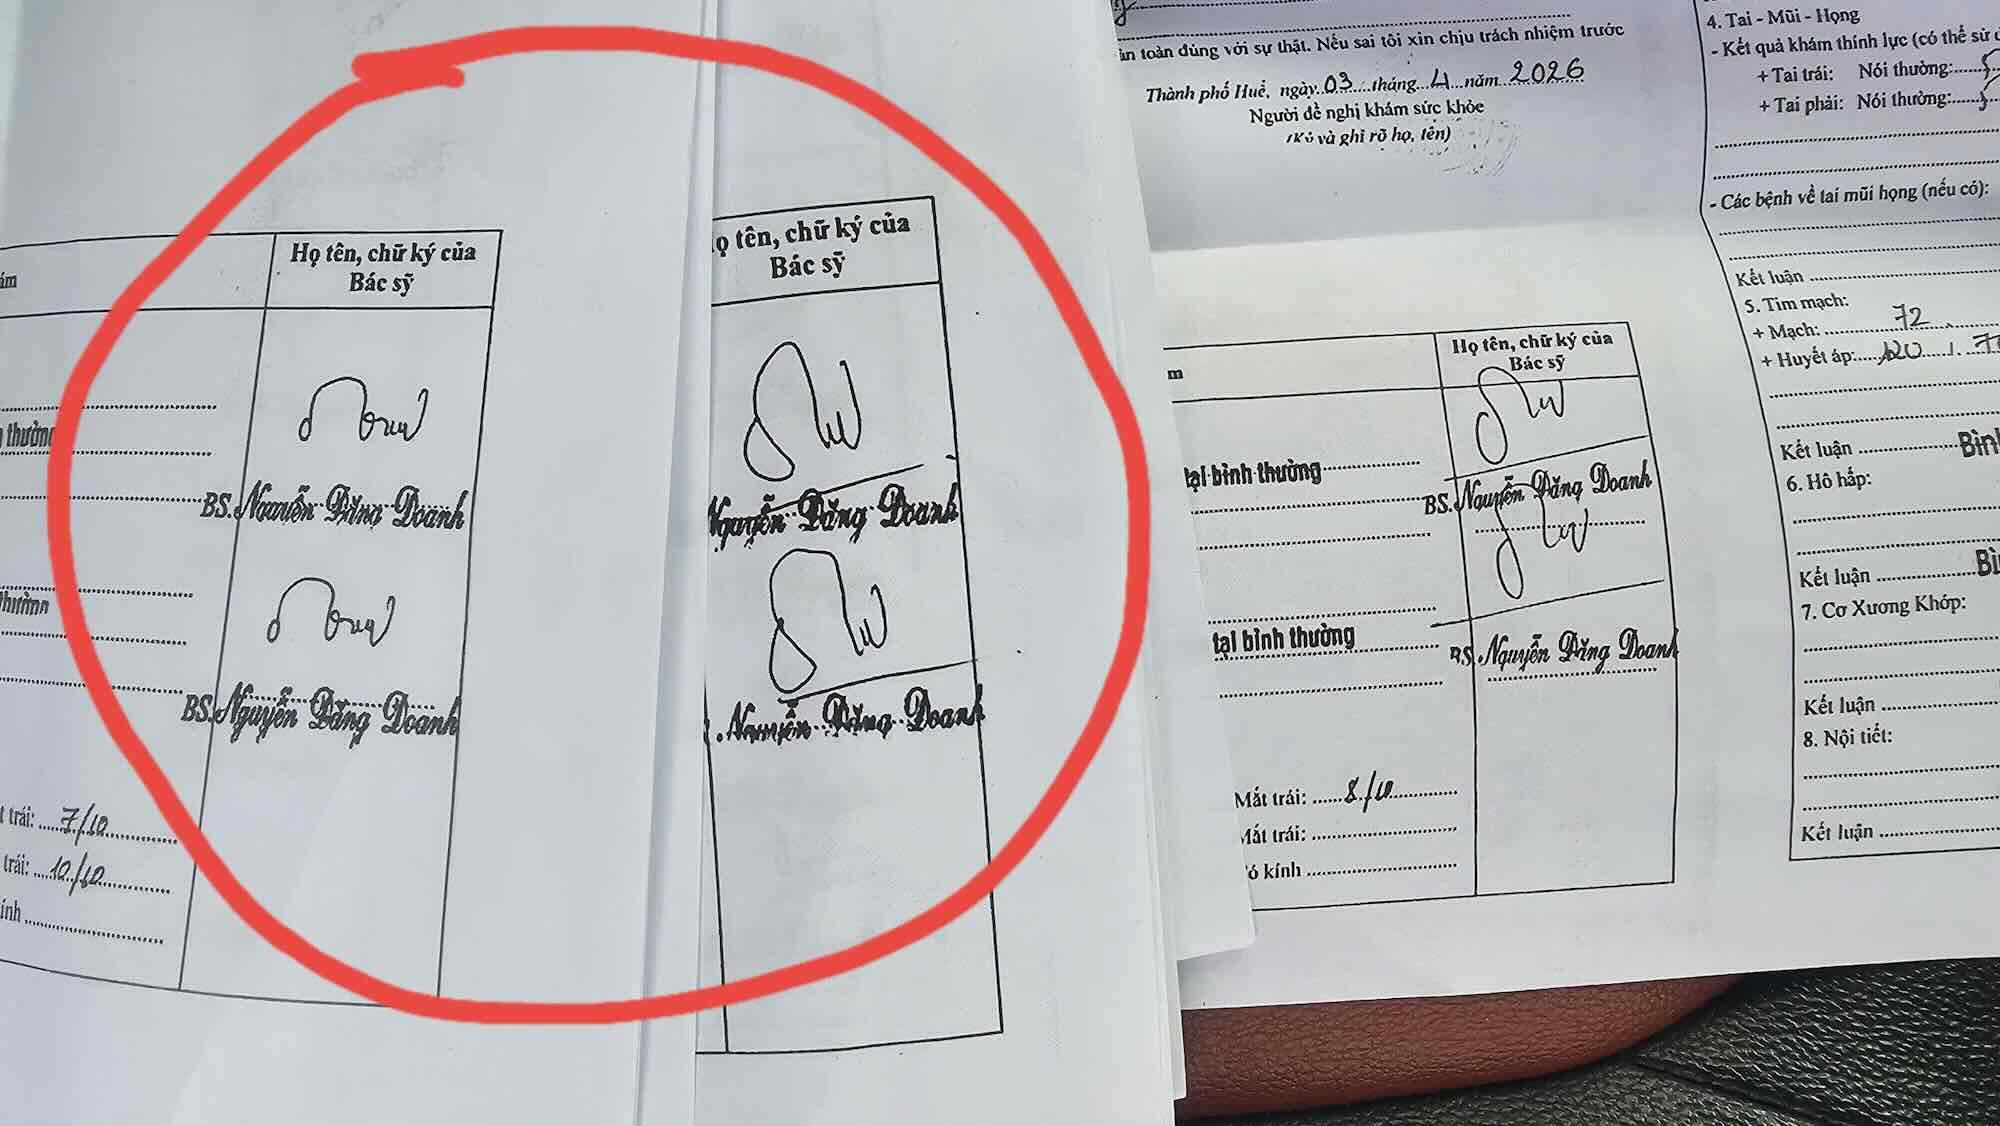 ám
Họ tên, chữ ký của
Bác sỹ
thường
BS. Nguyễn Đăng Doanh
thường
BS. Nguyễn Đăng Doanh
trái: 7/10
trái: 10/10
kính
ọ tên, chữ ký của
Bác sỹ
Nguyễn Đăng Doanh
. Nguyễn Đăng Doanh
àn toàn đúng với sự thật. Nếu sai tôi xin chịu trách nhiệm trước
Thành phố Huế, ngày 03 tháng 4 năm 2026
Người đề nghị khám sức khỏe
(Ký và ghi rõ họ, tên)
m
Họ tên, chữ ký của
Bác sỹ
tại bình thường
BS. Nguyễn Đăng Doanh
tại bình thường
BS. Nguyễn Đăng Doanh
Mắt trái: 8/10
Mắt trái:
ó kính
4. Tai - Mũi - Họng
- Kết quả khám thính lực (có thể sử
+ Tai trái: Nói thường:
+ Tai phải: Nói thường:
- Các bệnh về tai mũi họng (nếu có):
Kết luận
5. Tim mạch:
+ Mạch: 72
+ Huyết áp: 120 /
Kết luận
6. Hô hấp:
Kết luận
7. Cơ Xương Khớp:
Kết luận
8. Nội tiết:
Kết luận